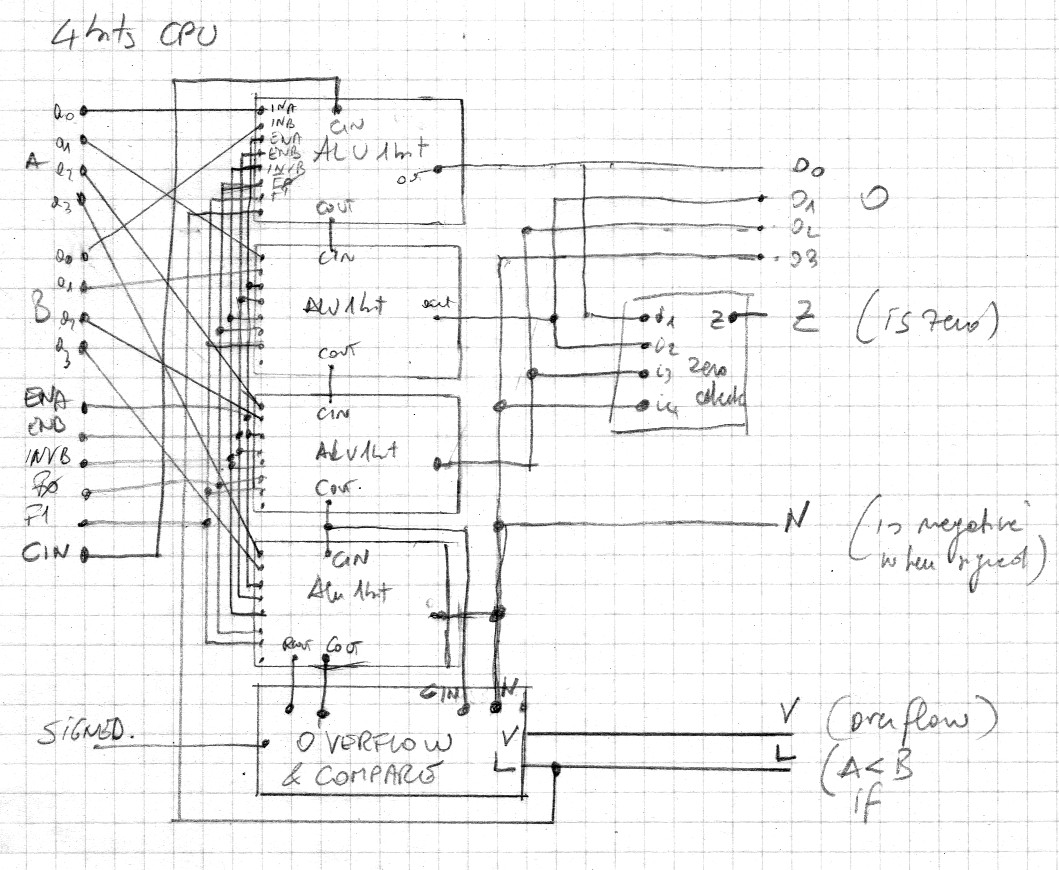 4 bits CPU
a0
a1
A
a2
a3
a0
a1
B
a3
ENA
ENB
INVB
F0
F1
CIN
INA
INB
ENA
ENB
INVB
F0
F1
CIN
ALU 1bit
COUT
CIN
ALU 1bit
out
COUT
CIN
ALU 1bit
COUT.
CIN
Alu 1bit
COUT
SIGNED.
CIN
N
OVERFLOW
& COMPARE
V
L
O0
O1
O
O2
O3
i1
i2
i3
i4
Z
zero
Z
(is zero)
N
(is negative
when signed)
V
(overflow)
L
(A<B
if